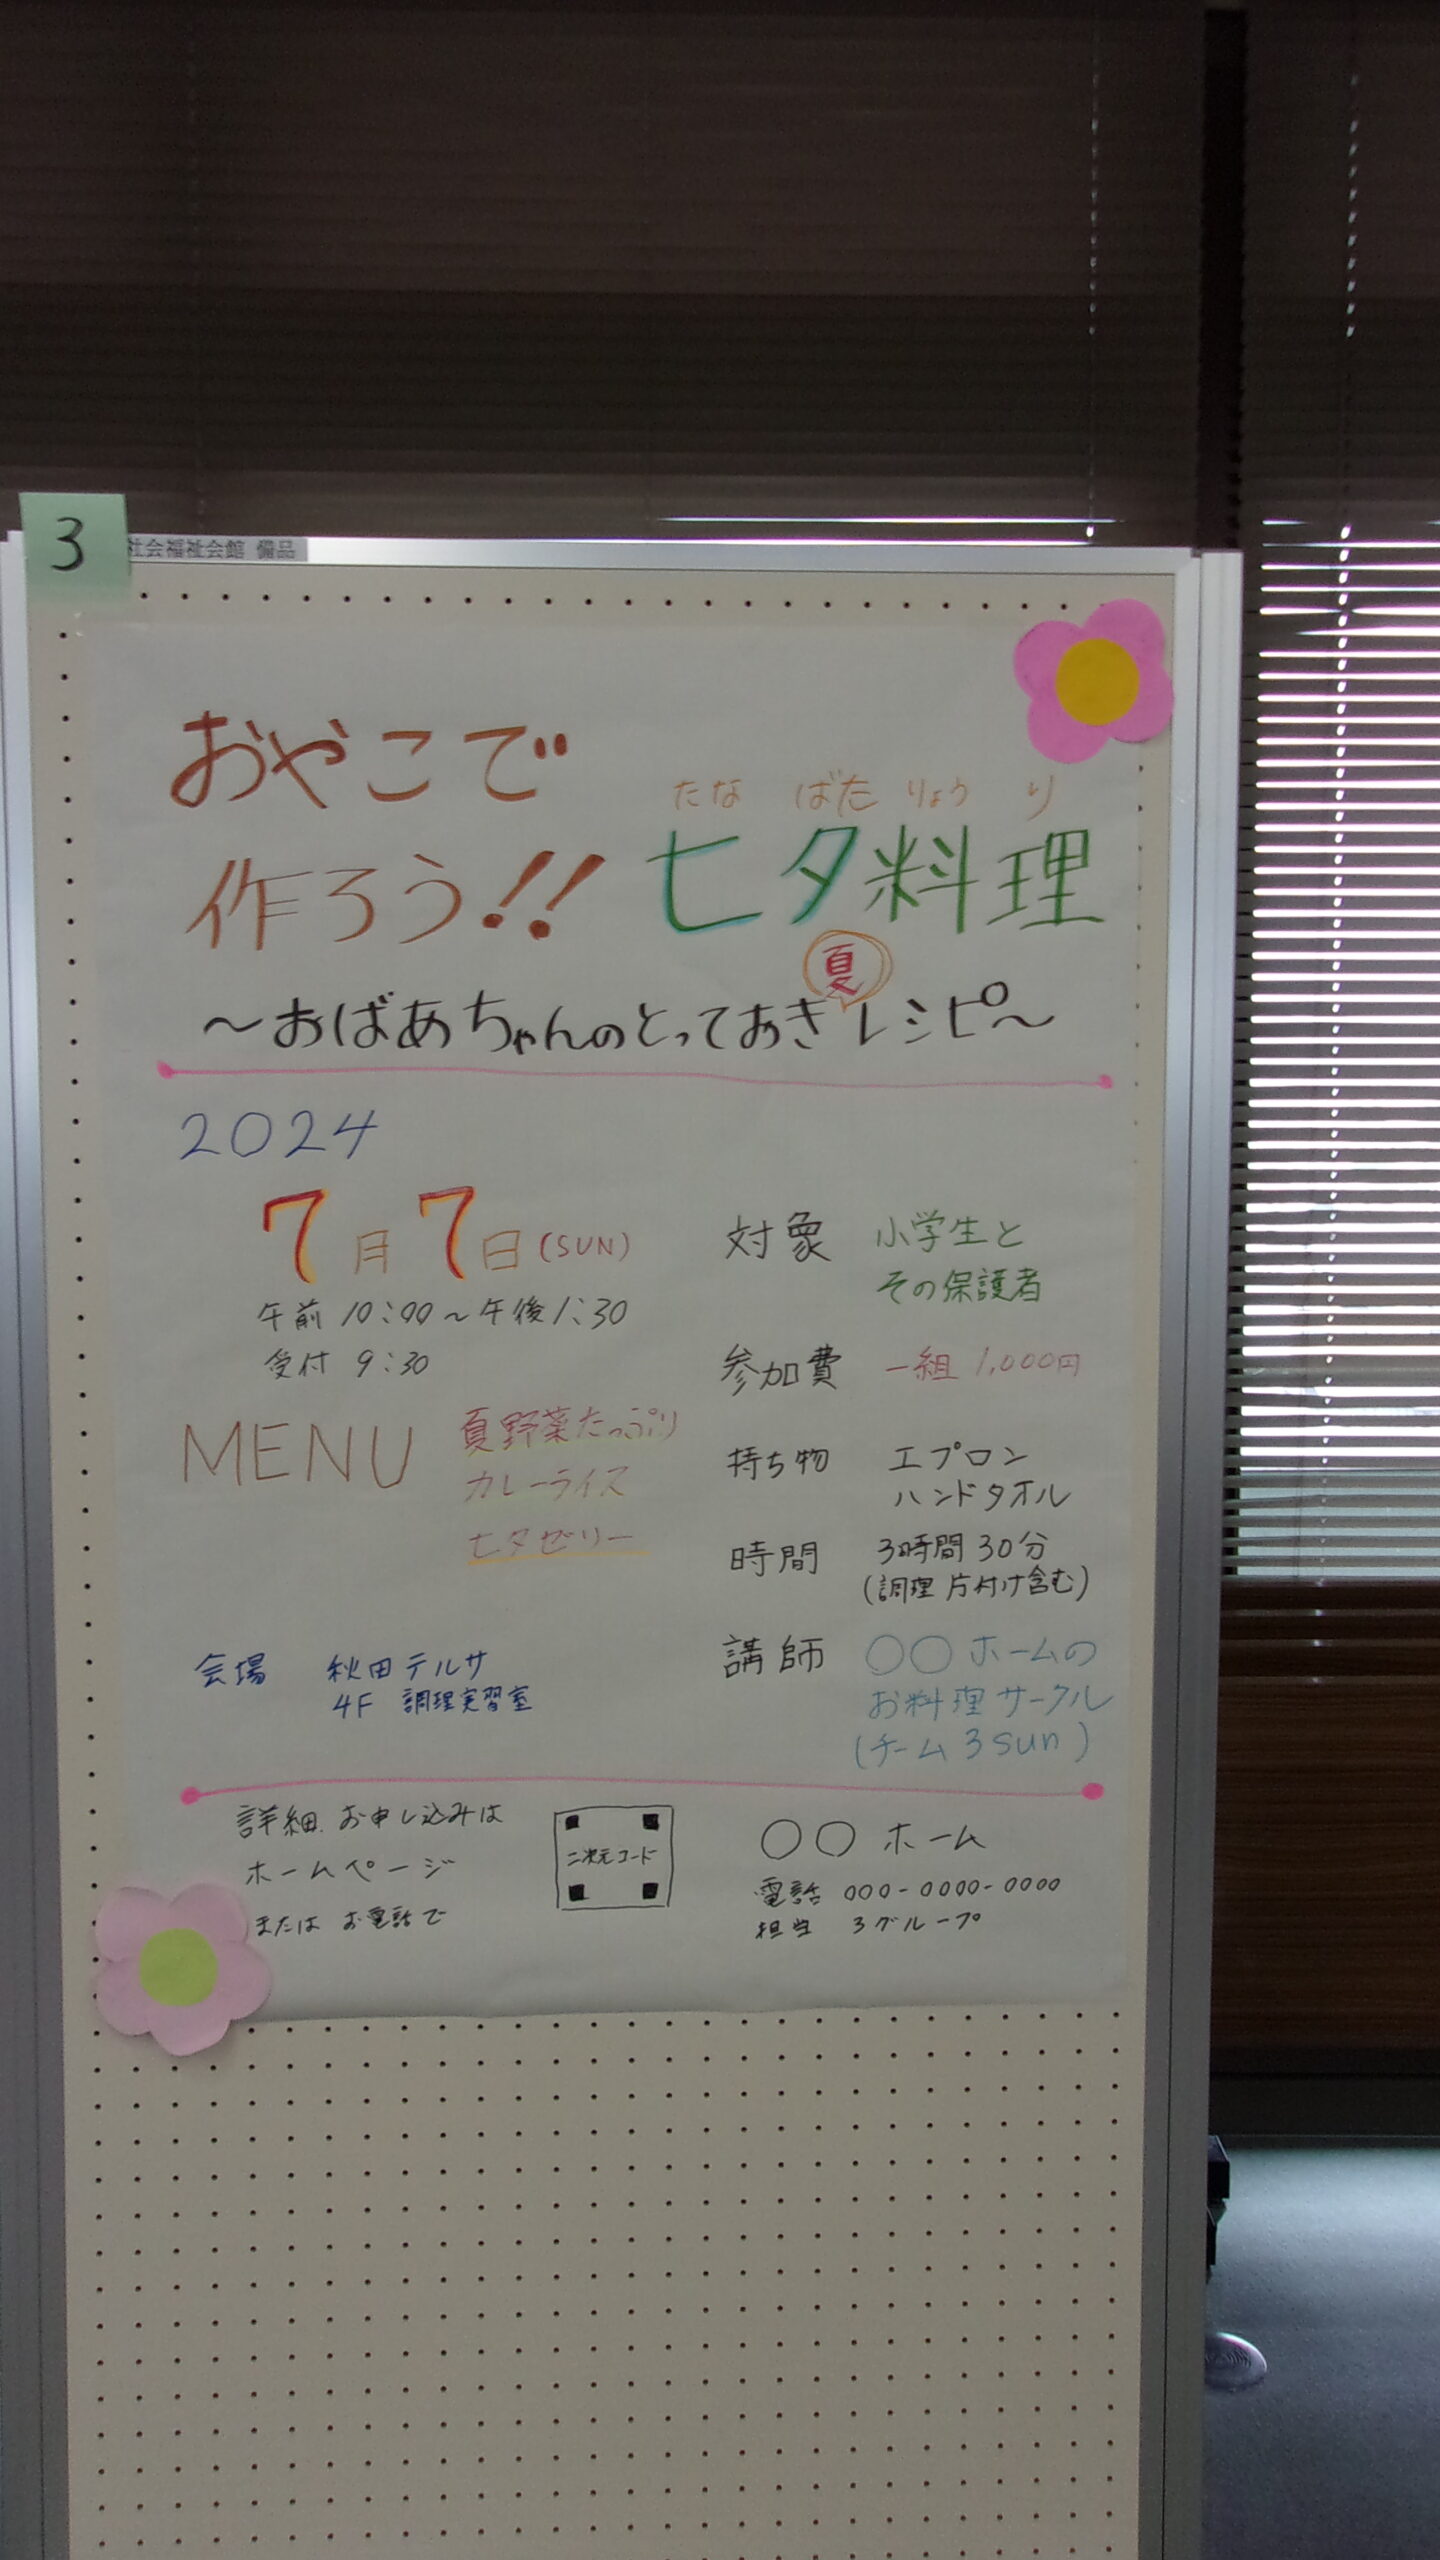 3
社会福祉会館 備品
おやこで
たなばたりょうり
作ろう!! 七夕料理
夏
～おばあちゃんのとっておきレシピ～
2024
7月7日(SUN)
午前10:00～午後1:30
受付 9:30
MENU
夏野菜たっぷり
カレーライス
七夕ゼリー
会場 秋田テルサ
4F 調理実習室
対象 小学生と
その保護者
参加費 一組 1,000円
持ち物 エプロン
ハンドタオル
時間 3時間30分
(調理 片付け含む)
講師 ○○ホームの
お料理サークル
(チーム 3sun)
詳細.お申し込みは
ホームページ
または お電話で
二次元コード
○○ ホーム
電話 000-0000-0000
担当 3グループ